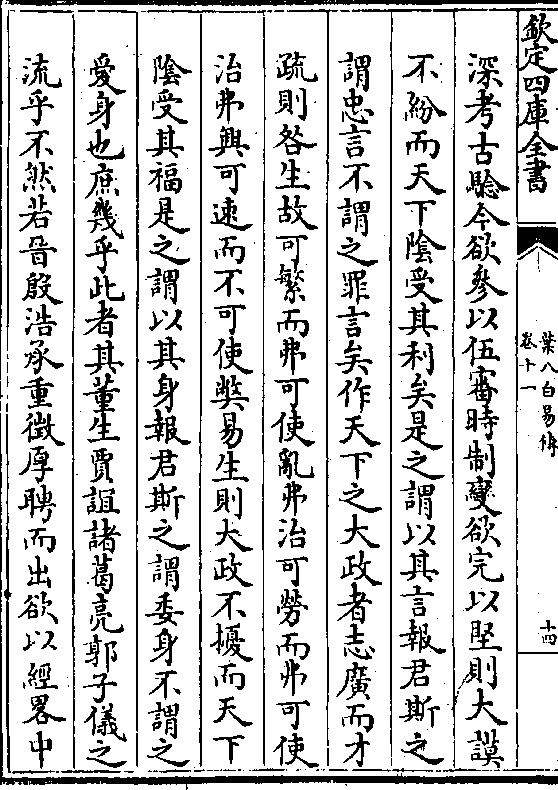 欽定四庫全書
葉八白易傳
卷十一
十四
深考古驗今欲參以伍審時制變欲完以堅則大謨
不紛而天下陰受其利矣是之謂以其言報君斯之
謂忠言不謂之罪言矣作天下之大政者志廣而才
疏則咎生故可繁而弗可使亂弗治可勞而弗可使
治弗興可速而不可使弊易生則大政不擾而天下
陰受其福是之謂以其身報君斯之謂委身不謂之
愛身也庶幾乎此者其董生賈誼諸葛亮郭子儀之
流乎不然若晉殷浩承重徴厚聘而出欲以經畧中